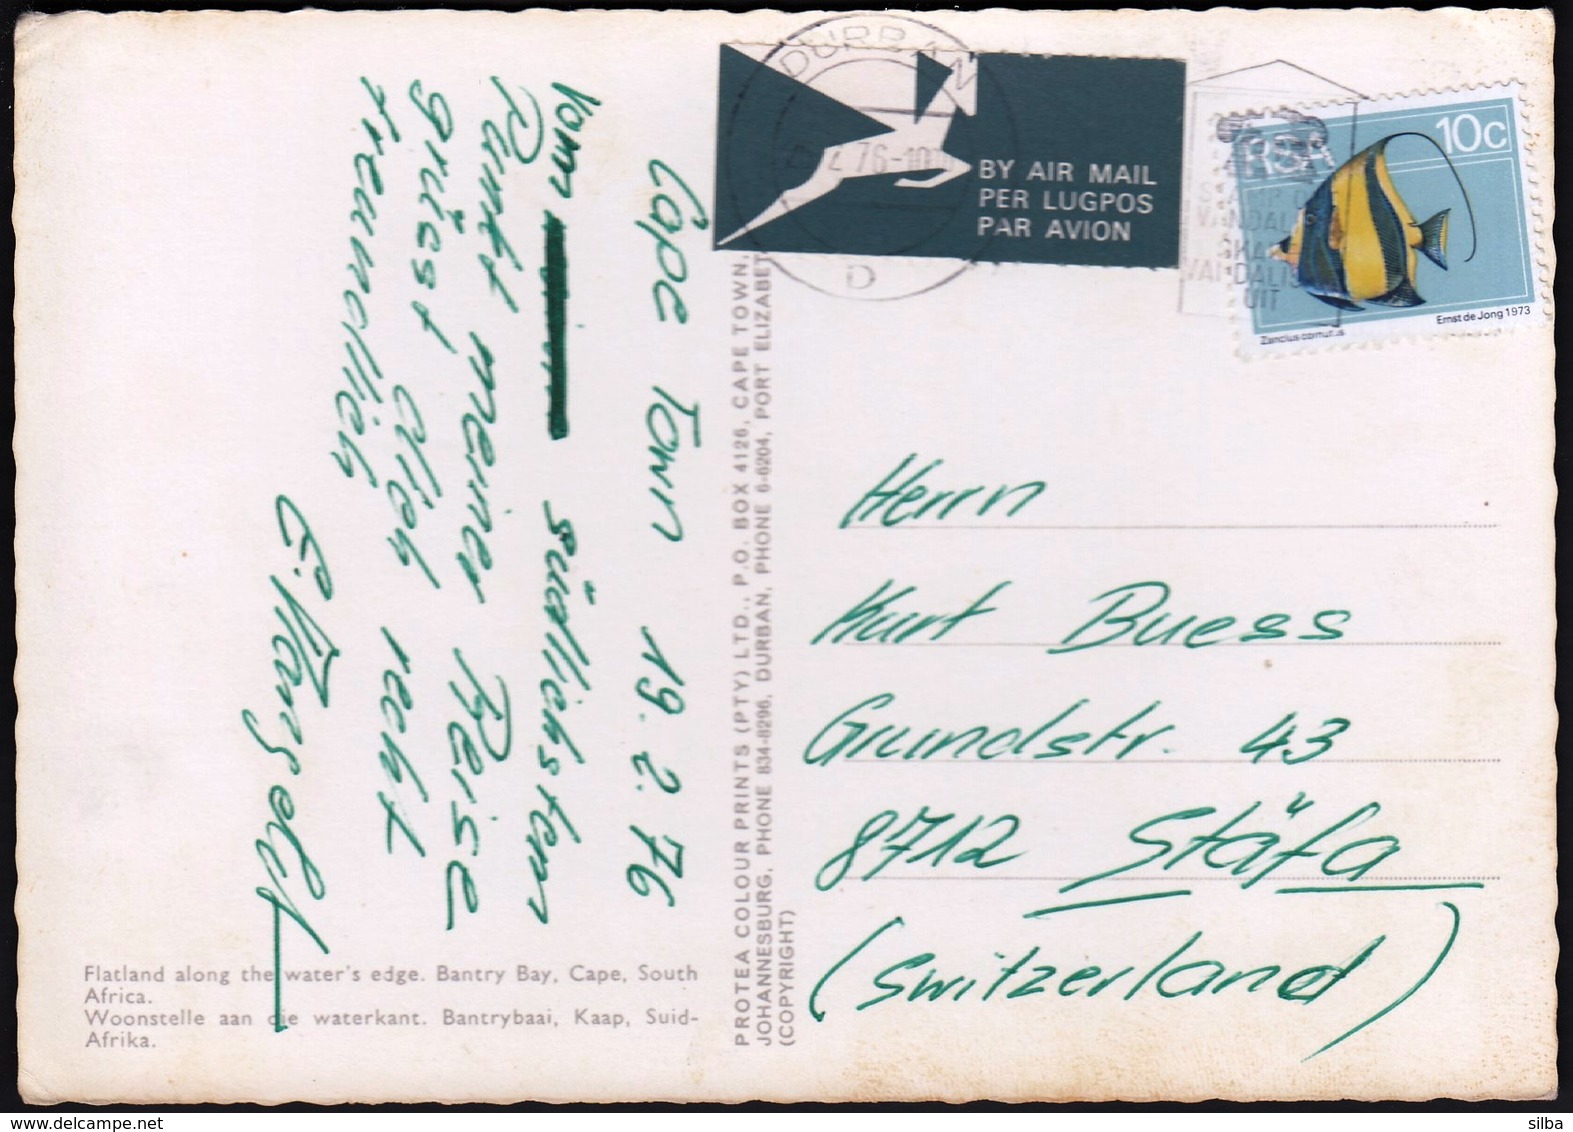 Cape Town 19.2.76
Vom südlichsten
Punkt meiner Reise
grüsst dich recht
freundlich
BY AIR MAIL
PER LUGPOS
PAR AVION
DURBAN
76-10
D
VANDALISM
SKAKEL
VANDALISME
UIT
RSA 10c
Zanclus cornutus
Ernst de Jong 1973
Herrn
Kurt Buess
Grundstr. 43
8712 Stäfa
(Switzerland)
PROTEA COLOUR PRINTS (PTY) LTD., P.O. BOX 4126, CAPE TOWN,
JOHANNESBURG, PHONE 834-8296, DURBAN, PHONE 6-6204, PORT ELIZABET
(COPYRIGHT)
Flatland along the water's edge. Bantry Bay, Cape, South
Africa.
Woonstelle aan die waterkant. Bantrybaai, Kaap, Suid-
Afrika.
silba